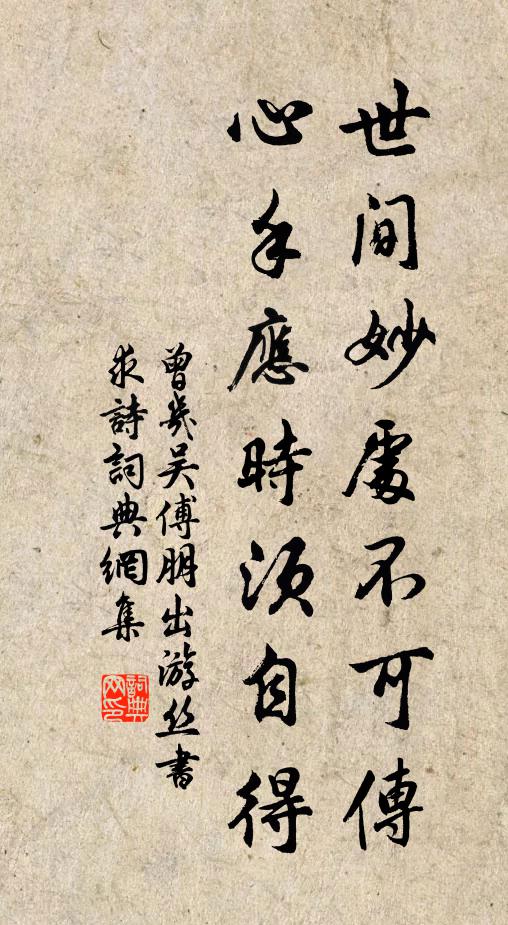 世間妙處不可傳
心手應時須自得
曾幾吳傅朋出游丝書
求詩詞典網集
詞典
网印